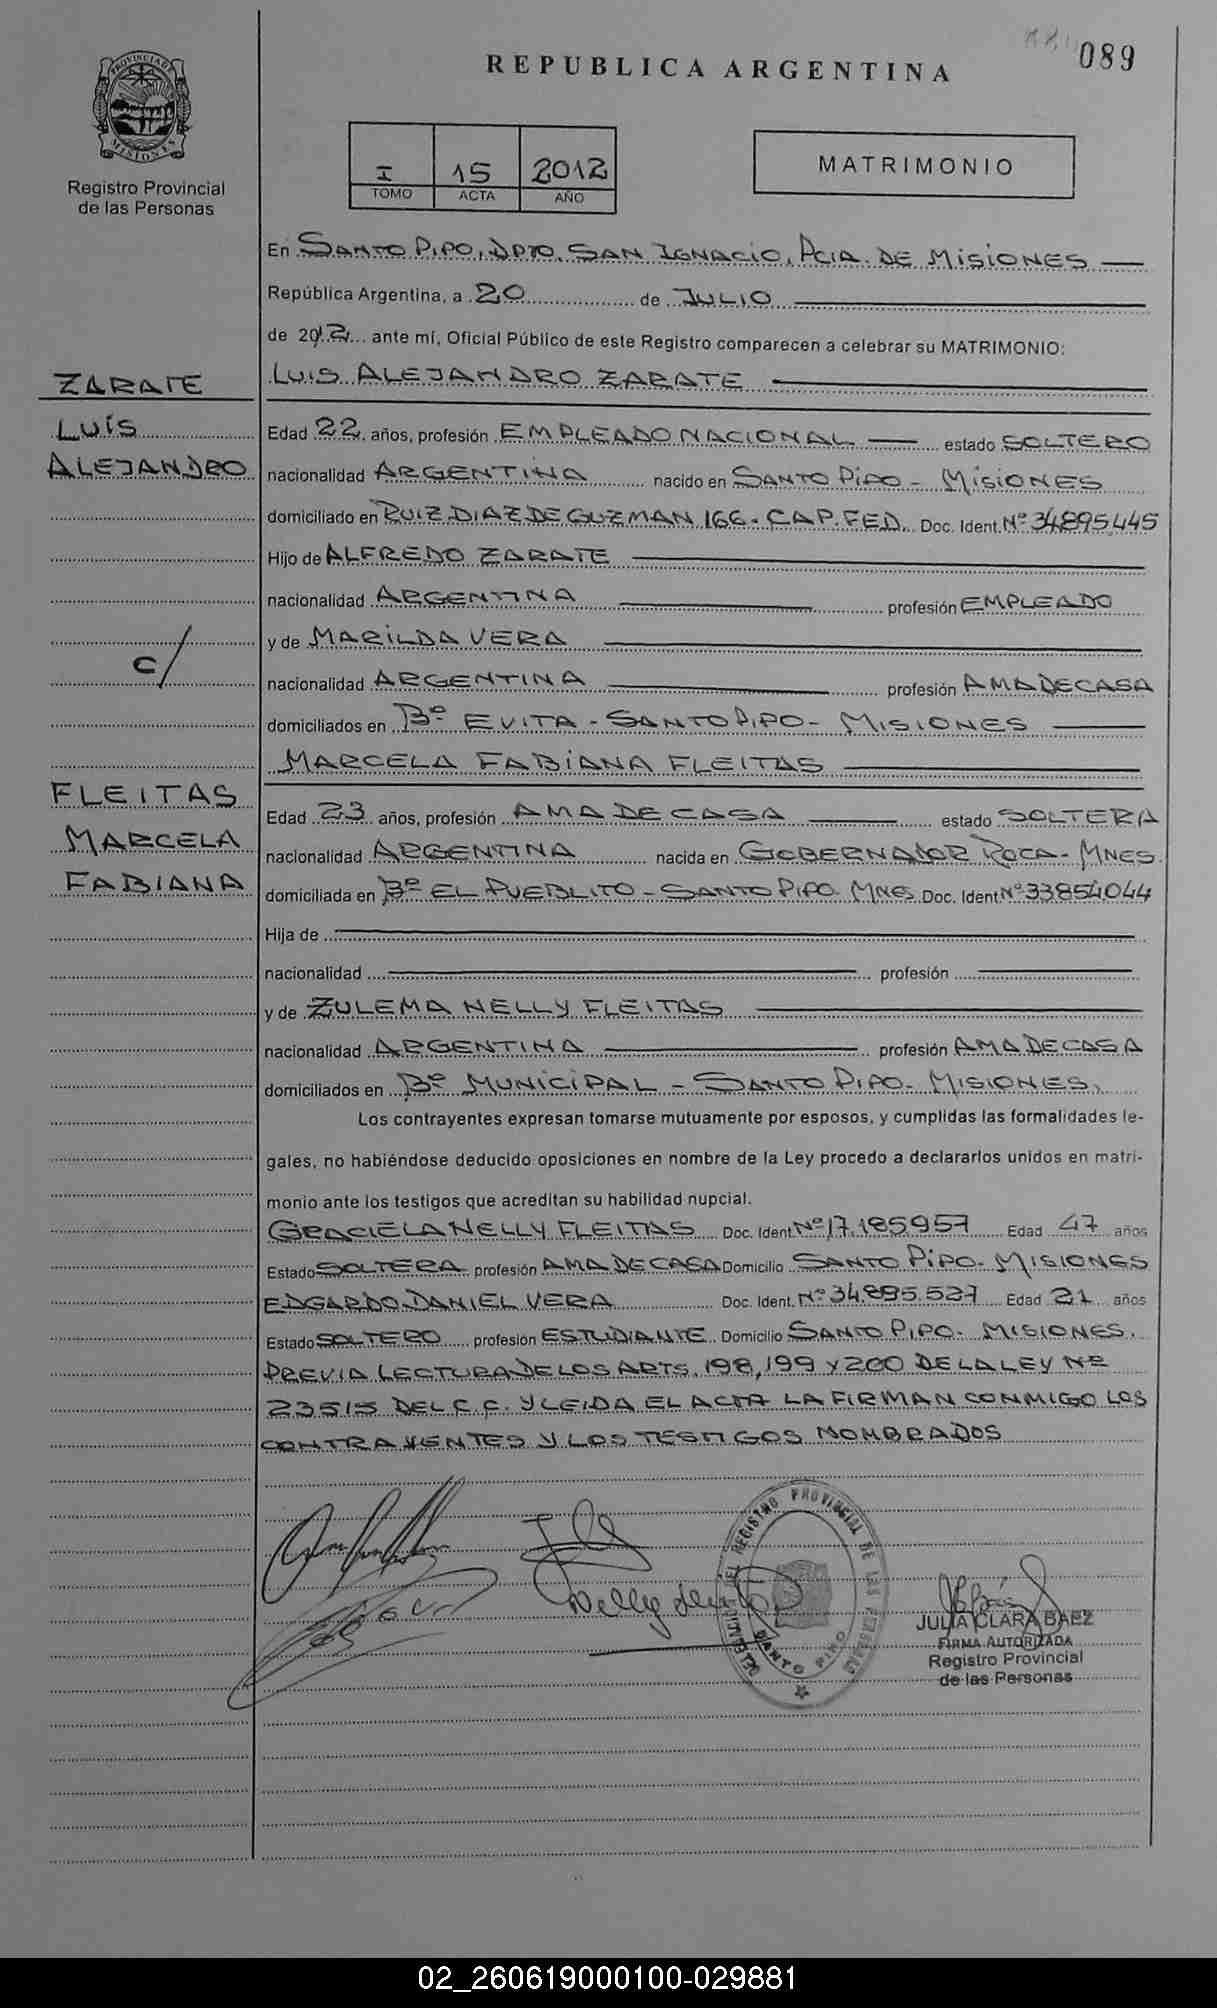 089
REPUBLICA ARGENTINA
PROVINCIA DE MISIONES
Registro Provincial
de las Personas
I 15 2012
TOMO ACTA AÑO
MATRIMONIO
En SANTO PIPO, DPTO. SAN IGNACIO, PCIA. DE MISIONES
República Argentina, a 20 de JULIO
de 2012 ante mí, Oficial Público de este Registro comparecen a celebrar su MATRIMONIO:
ZARATE
LUIS
ALEJANDRO
c/
FLEITAS
MARCELA
FABIANA
LUIS ALEJANDRO ZARATE
Edad 22 años, profesión EMPLEADO NACIONAL estado SOLTERO
nacionalidad ARGENTINA nacido en SANTO PIPO - MISIONES
domiciliado en RUIZ DIAZ DE GUZMAN 166 - CAP. FED. Doc. Ident. Nº 34.895.445
Hijo de ALFREDO ZARATE
nacionalidad ARGENTINA profesión EMPLEADO
y de MARILDA VERA
nacionalidad ARGENTINA profesión AMA DE CASA
domiciliados en Bº EVITA - SANTO PIPO - MISIONES
MARCELA FABIANA FLEITAS
Edad 23 años, profesión AMA DE CASA estado SOLTERA
nacionalidad ARGENTINA nacida en GOBERNADOR ROCA - MNES.
domiciliada en Bº EL PUEBLITO - SANTO PIPO - MNES. Doc. Ident. Nº 33.854.044
Hija de
nacionalidad profesión
y de ZULEMA NELLY FLEITAS
nacionalidad ARGENTINA profesión AMA DE CASA
domiciliados en Bº MUNICIPAL - SANTO PIPO - MISIONES.
Los contrayentes expresan tomarse mutuamente por esposos, y cumplidas las formalidades le-
gales, no habiéndose deducido oposiciones en nombre de la Ley procedo a declararlos unidos en matri-
monio ante los testigos que acreditan su habilidad nupcial.
GRACIELA NELLY FLEITAS Doc. Ident. Nº 17.185.957 Edad 47 años
Estado SOLTERA profesión AMA DE CASA Domicilio SANTO PIPO - MISIONES
EDGARDO DANIEL VERA Doc. Ident. Nº 34.895.527 Edad 21 años
Estado SOLTERO profesión ESTUDIANTE Domicilio SANTO PIPO - MISIONES.
PREVIA LECTURA DE LOS ARTS. 198, 199 Y 200 DE LA LEY Nº
23515 DEL C.C. Y LEIDA EL ACTA LA FIRMAN CONMIGO LOS
CONTRAYENTES Y LOS TESTIGOS NOMBRADOS
DEL REGISTRO PROVINCIAL DE LAS PERSONAS
SANTO PIPO
JULIA CLARA BAEZ
FIRMA AUTORIZADA
Registro Provincial
de las Personas
02_260619000100-029881